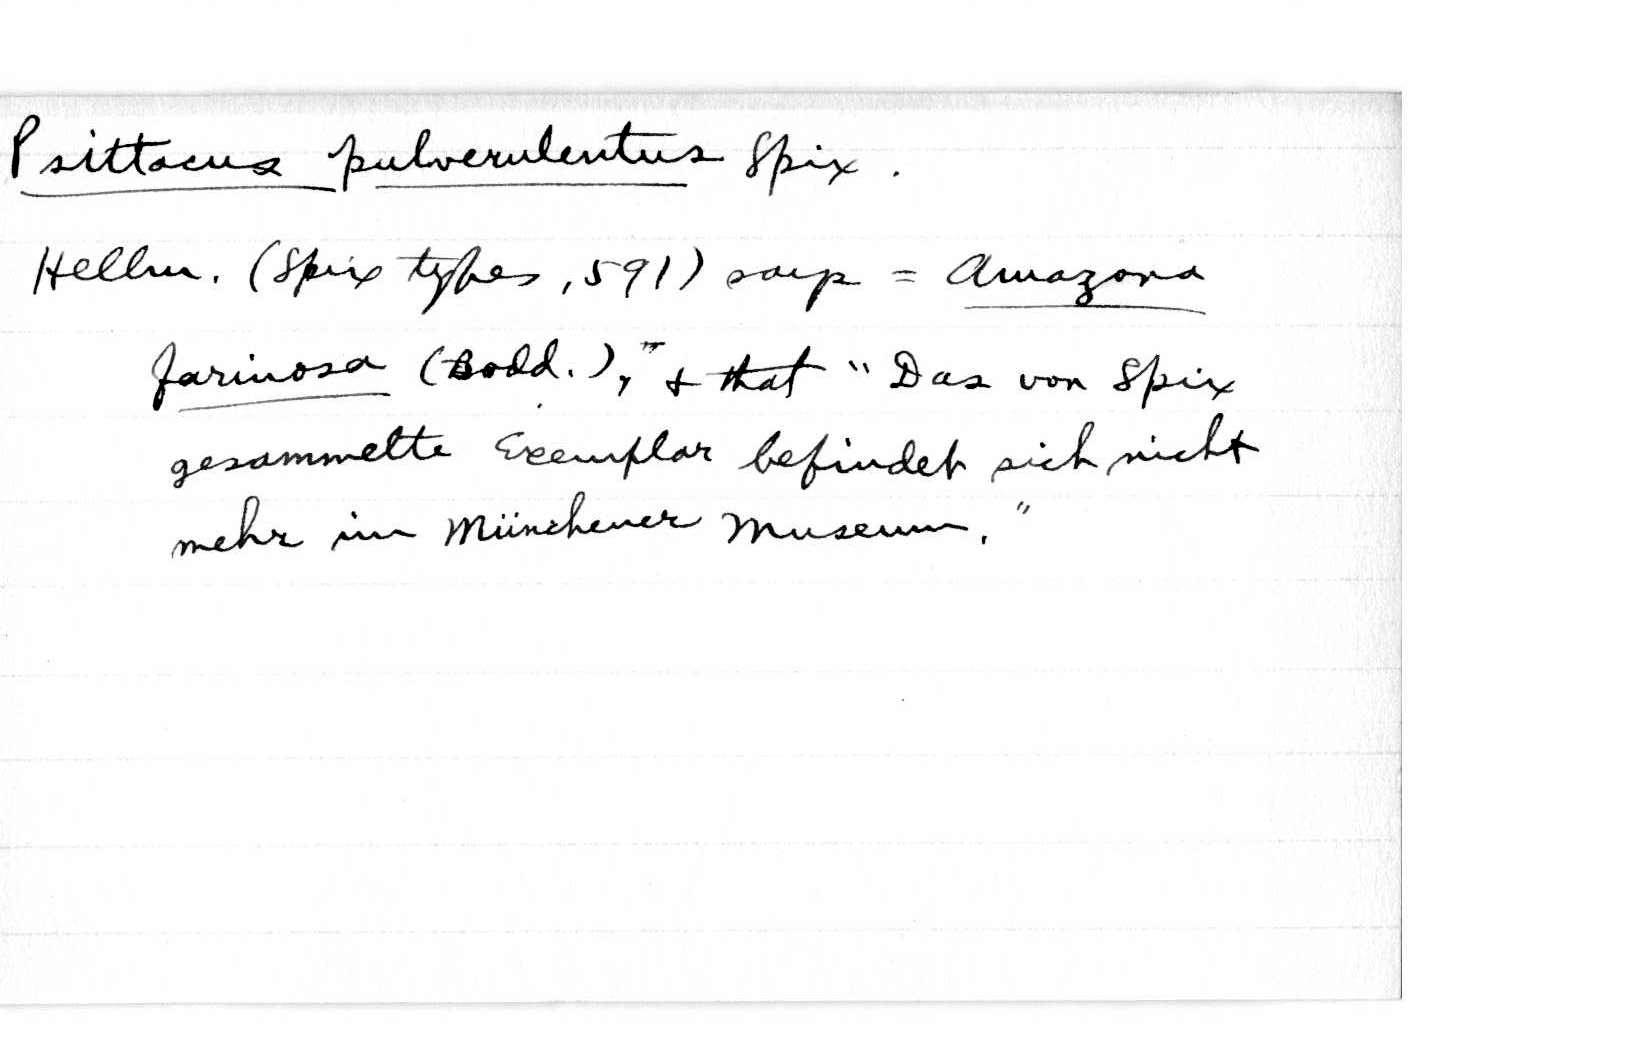 Psittacus pulverulentus Spix.
Hellm. (Spix types, 591) says = Amazona
farinosa (Bodd.)," & that "Das von Spix
gesammelte Exemplar befindet sich nicht
mehr im Münchener Museum."